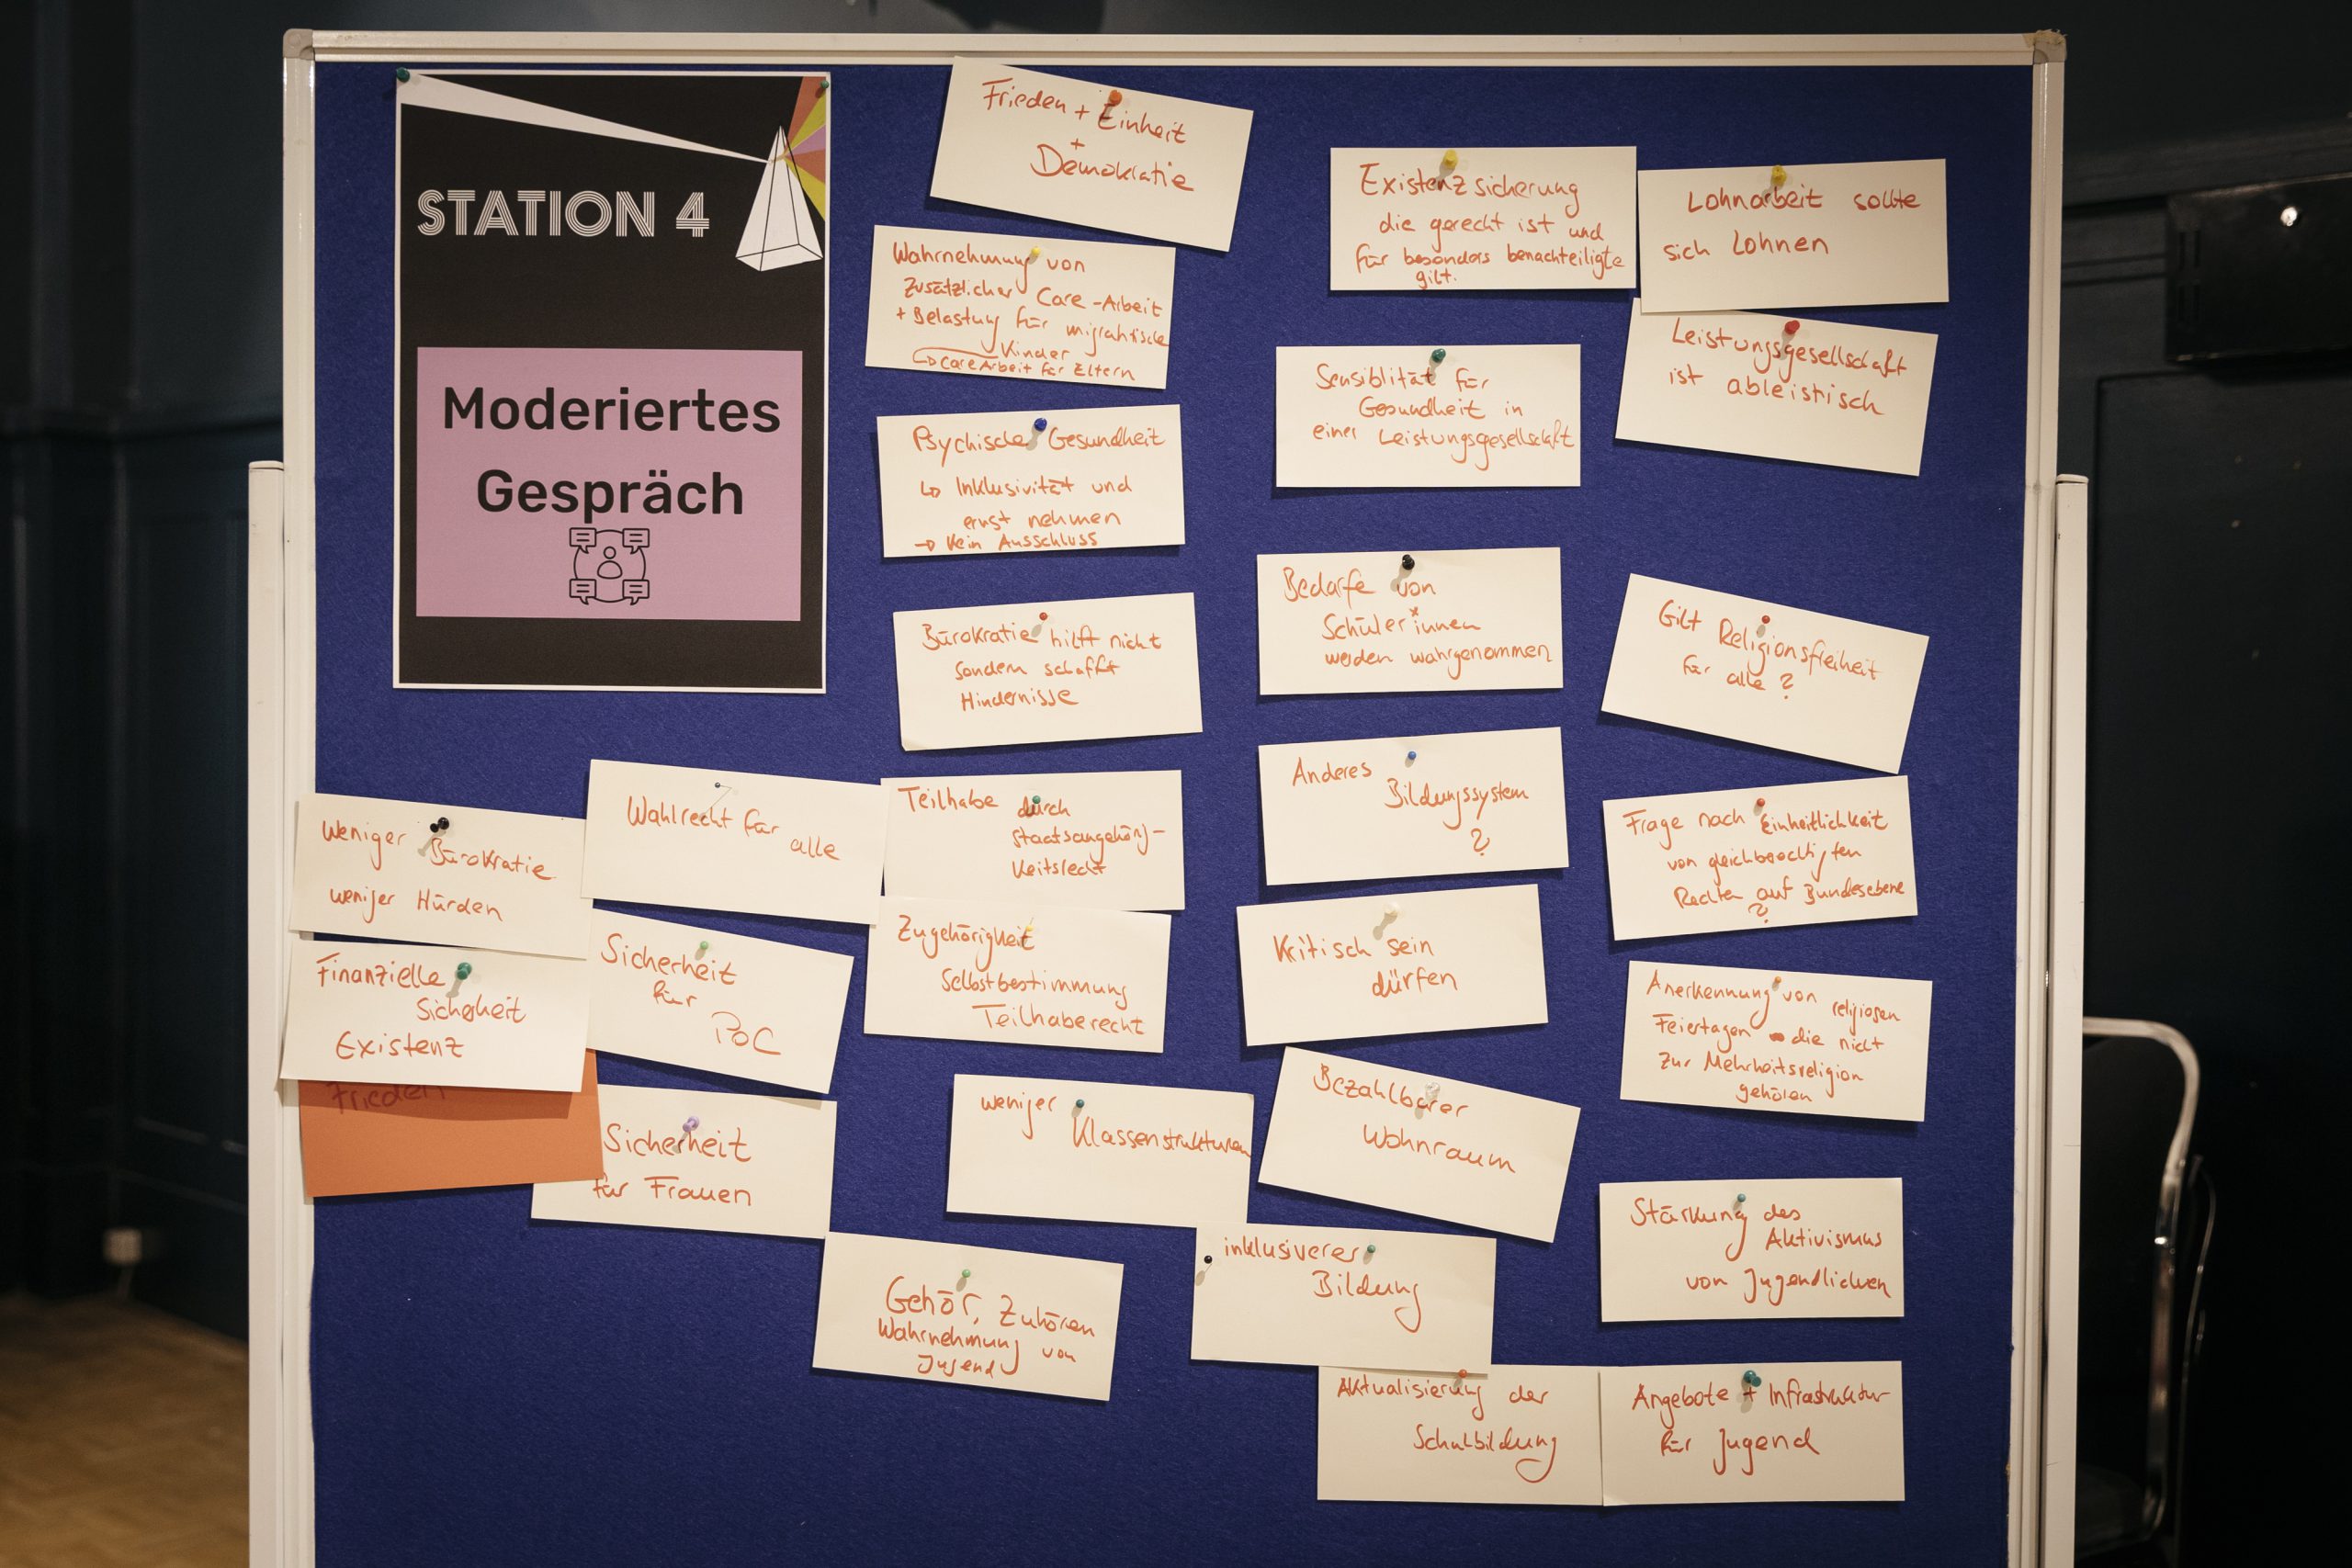 STATION 4
Moderiertes
Gespräch
Frieden + Einheit
+
Demokratie
Wahrnehmung von
zusätzlicher Care-Arbeit
+ Belastung für migrantische
Kinder
↳ Care Arbeit für Eltern
Psychische Gesundheit
↳ Inklusivität und
ernst nehmen
→ kein Ausschluss
Bürokratie hilft nicht
sondern schafft
Hindernisse
Teilhabe durch
Staatsangehörig-
keitsrecht
Zugehörigkeit
Selbstbestimmung
Teilhaberecht
Wahlrecht für
alle
Weniger Bürokratie
weniger Hürden
Finanzielle
Sicherheit
Existenz
Frieden
Sicherheit
für
PoC
Sicherheit
für Frauen
Gehör, Zuhören
Wahrnehmung von
Jugend
Existenzsicherung
die gerecht ist und
für besonders benachteiligte
gilt.
Sensiblität für
Gesundheit in
einer Leistungsgesellschaft
Bedarfe von
Schüler*innen
werden wahrgenommen
Anderes
Bildungssystem
?
Kritisch sein
dürfen
Bezahlbarer
Wohnraum
weniger
Klassenstrukturen
inklusiverer
Bildung
Aktualisierung der
Schulbildung
Lohnarbeit sollte
sich lohnen
Leistungsgesellschaft
ist ableistisch
Gilt Religionsfreiheit
für alle ?
Frage nach Einheitlichkeit
von gleichberechtigten
Rechten auf Bundesebene
?
Anerkennung von religiösen
Feiertagen die nicht
zur Mehrheitsreligion
gehören
Stärkung des
Aktivismus
von Jugendlichen
Angebote + Infrastruktur
für Jugend